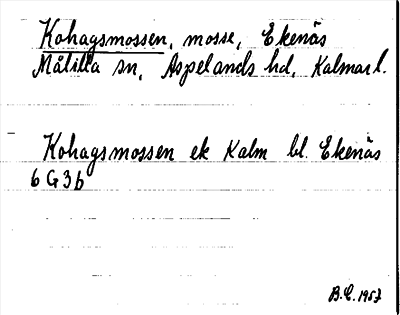 Kohagsmossen, mosse, Ekenäs
Målilla sn, Aspelands hd, Kalmar l.
Kohagsmossen ek Kalm bl. Ekenäs
6 G 3 b
B.E. 1957